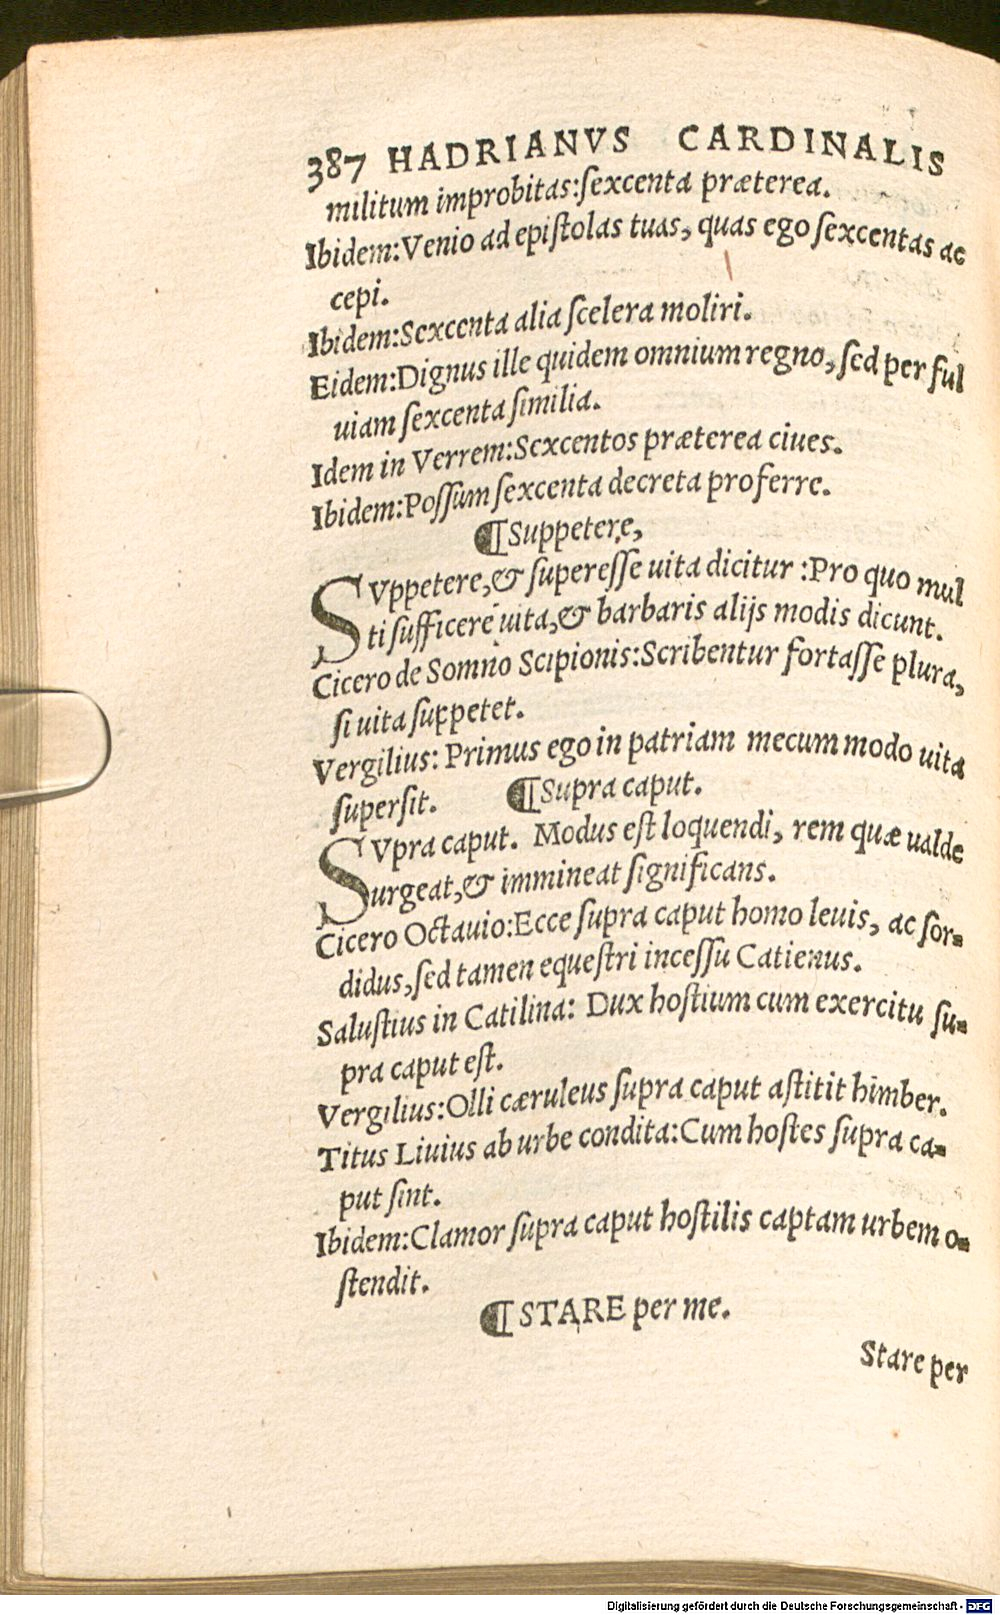 387 HADRIANVS CARDINALIS
militum improbitas:ſexcenta præterea.
Ibidem:Venio ad epiſtolas tuas, quas ego ſexcentas ac
cepi.
Ibidem:Sexcenta alia ſcelera moliri.
Eidem:Dignus ille quidem omnium regno, ſed per ful
uiam ſexcenta ſimilia.
Idem in Verrem:Sexcentos præterea ciues.
Ibidem:Poſſum ſexcenta decreta proferre.
¶Suppetere,
SVppetere,& ſupereſſe uita dicitur :Pro quo mul
ti ſufficere uita,& barbaris alijs modis dicunt.
Cicero de Somno Scipionis:Scribentur fortaſſe plura,
ſi uita ſuppetet.
Vergilius: Primus ego in patriam mecum modo uita
ſuperſit. ¶Supra caput.
SVpra caput. Modus eſt loquendi, rem quæ ualde
urgeat,& immineat ſignificans.
Cicero Octauio:Ecce ſupra caput homo leuis, ac ſor-
didus,ſed tamen equeſtri inceſſu Catienus.
Saluſtius in Catilina: Dux hoſtium cum exercitu ſu-
pra caput eſt.
Vergilius:Olli cæruleus ſupra caput aſtitit himber.
Titus Liuius ab urbe condita:Cum hoſtes ſupra ca-
put ſint.
Ibidem:Clamor ſupra caput hoſtilis captam urbem o-
ſtendit.
¶STARE per me.
Stare per
Digitalisierung gefördert durch die Deutsche Forschungsgemeinschaft - DFG